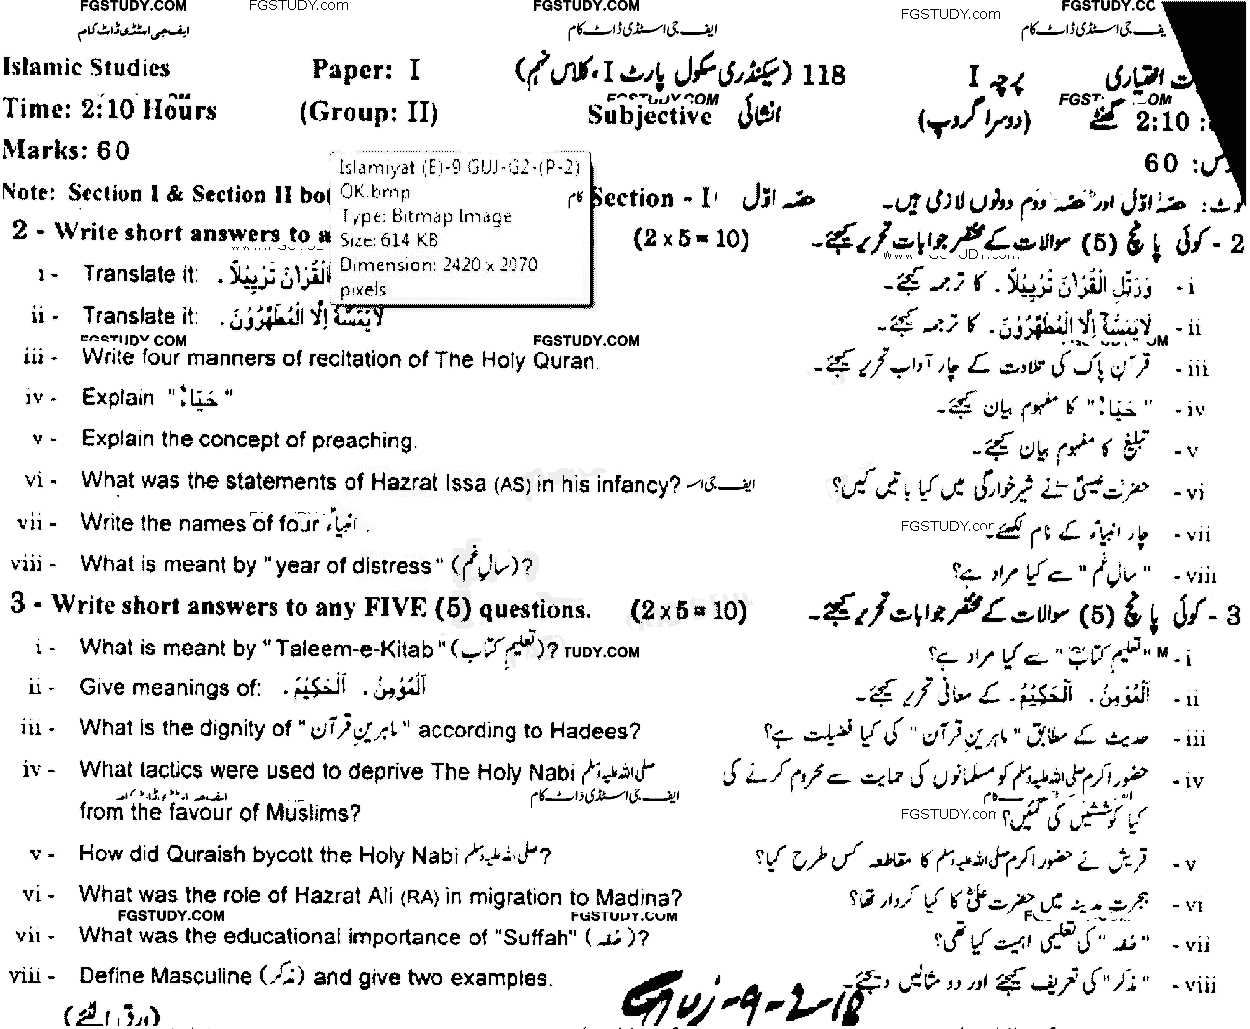 FGSTUDY.COM FGSTUDY.com FGSTUDY.COM FGSTUDY.com FGSTUDY.CC
ایف جی اسٹڈی ڈاٹ کام ایف جی اسٹڈی ڈاٹ کام یف جی اسٹڈی ڈاٹ کام
Islamic Studies Paper: I 118 (سیکنڈری سکول پارٹ I، کلاس نہم) پرچہ I ت اختیاری
Time: 2:10 Hours (Group: II) Subjective انشائی (دوسرا گروپ) 2:10 گھنٹے
Marks: 60 60
Islamiyat (E)-9 GUJ-G2-(P-2)
OK.bmp
Type: Bitmap Image
Size: 614 KB
Dimension: 2420 x 2070
pixels
Note: Section I & Section II bot Section - I حصہ اوّل وٹ: حصہ اوّل اور حصہ دوم دونوں لازمی ہیں۔
2 - Write short answers to a (2 x 5 = 10) 2 - کوئی پانچ (5) سوالات کے مختصر جوابات تحریر کیجئے۔
i - Translate it: الْقُرْاٰنَ تَرْتِيْلًا . i - وَرَتِّلِ الْقُرْاٰنَ تَرْتِيْلًا . کا ترجمہ کیجئے۔
ii - Translate it: لَا يَمَسُّهٗٓ اِلَّا الْمُطَهَّرُوْنَ . ii - لَا يَمَسُّهٗٓ اِلَّا الْمُطَهَّرُوْنَ . کا ترجمہ کیجئے۔
FGSTUDY.COM FGSTUDY.COM
iii - Write four manners of recitation of The Holy Quran. iii - قرآن پاک کی تلاوت کے چار آداب تحریر کیجئے۔
iv - Explain "حَيَاءٌ" iv - "حَيَاءٌ" کا مفہوم بیان کیجئے۔
v - Explain the concept of preaching. v - تبلیغ کا مفہوم بیان کیجئے۔
vi - What was the statements of Hazrat Issa (AS) in his infancy? ایف جی اس vi - حضرت عیسیٰؑ نے شیر خوارگی میں کیا باتیں کیں؟
vii - Write the names of four انبیاءؑ . FGSTUDY.cor vii - چار انبیاءؑ کے نام لکھئے۔
viii - What is meant by "year of distress" (سالِ غم)? viii - "سالِ غم" سے کیا مراد ہے؟
3 - Write short answers to any FIVE (5) questions. (2 x 5 = 10) 3 - کوئی پانچ (5) سوالات کے مختصر جوابات تحریر کیجئے۔
i - What is meant by "Taleem-e-Kitab" (تعلیمِ کتاب)? TUDY.COM i - "تعلیمِ کتاب" سے کیا مراد ہے؟
ii - Give meanings of: اَلْمُؤْمِنُ . اَلْحَكِيْمُ . ii - اَلْمُؤْمِنُ . اَلْحَكِيْمُ . کے معانی تحریر کیجئے۔
iii - What is the dignity of "ماہرینِ قرآن" according to Hadees? iii - حدیث کے مطابق "ماہرینِ قرآن" کی کیا فضیلت ہے؟
iv - What tactics were used to deprive The Holy Nabi صلی اللہ علیہ وسلم iv - حضور اکرم صلی اللہ علیہ وسلم کو مسلمانوں کی حمایت سے محروم کرنے کی
ایف جی اسٹڈی ڈاٹ کام
from the favour of Muslims? FGSTUDY.con کیا کوششیں کی گئیں؟
v - How did Quraish bycott the Holy Nabi صلی اللہ علیہ وسلم? v - قریش نے حضور اکرم صلی اللہ علیہ وسلم کا مقاطعہ کس طرح کیا؟
vi - What was the role of Hazrat Ali (RA) in migration to Madina? vi - ہجرتِ مدینہ میں حضرت علیؓ کا کیا کردار تھا؟
FGSTUDY.COM FGSTUDY.COM
vii - What was the educational importance of "Suffah" (صُفہ)? vii - "صُفہ" کی تعلیمی اہمیت کیا تھی؟
viii - Define Masculine (مذکر) and give two examples. viii - "مذکر" کی تعریف کیجئے اور دو مثالیں دیجئے۔
(ورق الٹئے) Guj-9-2-18